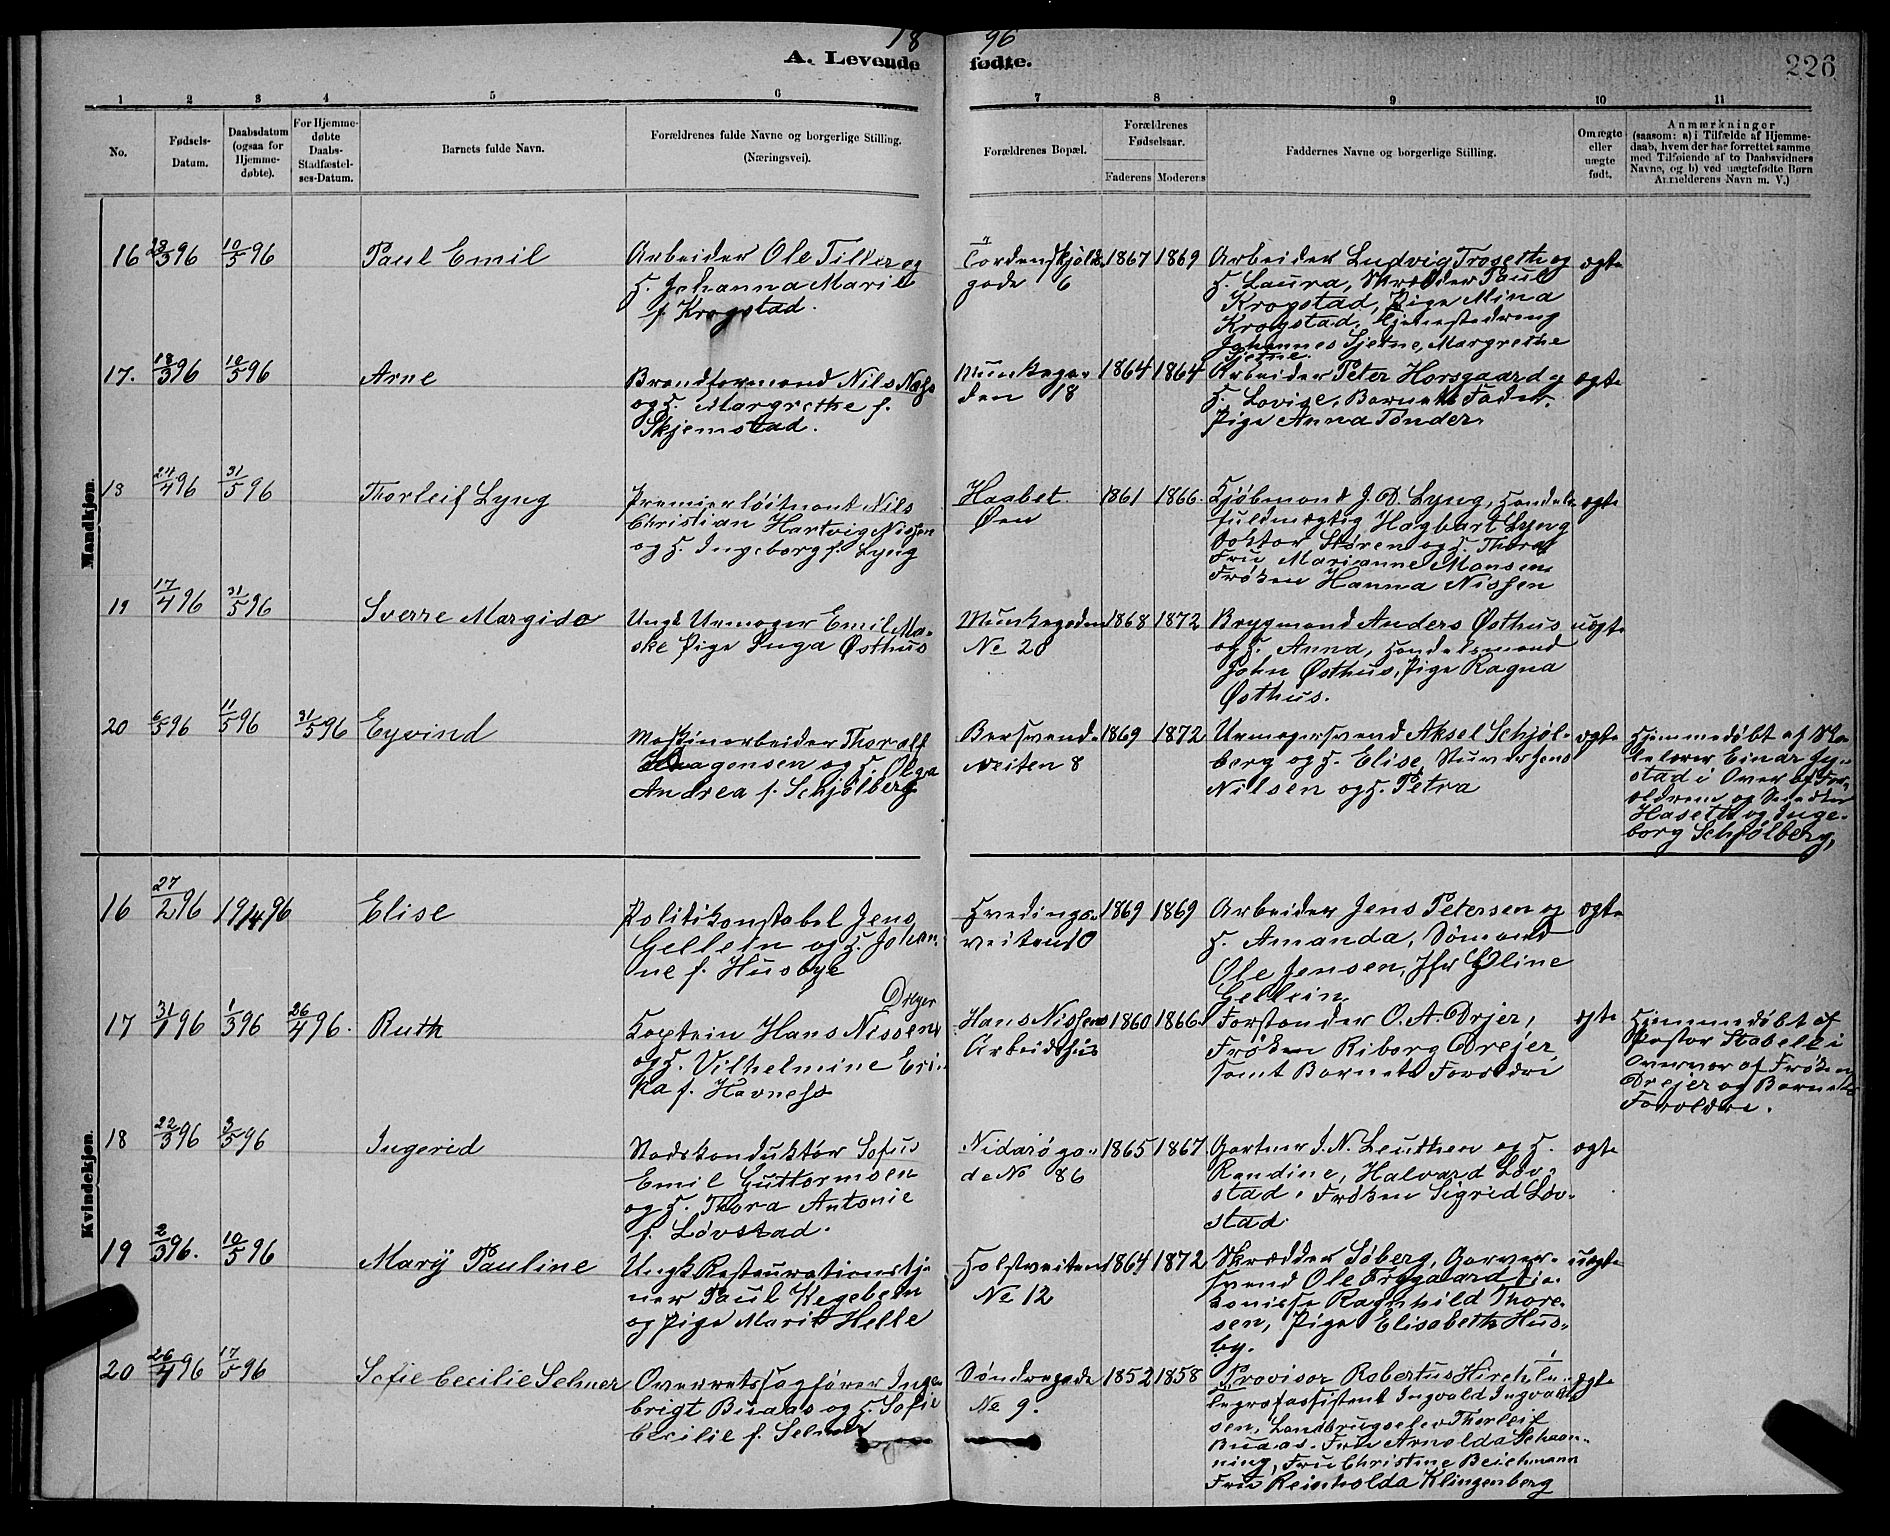 18 96
A. Levende fødte.
226
1 2 3 4 5 6 7 8 9 10 11
No.
Fødsels-
Datum.
Daabsdatum
(ogsaa for
Hjemme-
døbte).
For Hjemme-
døbte
Daabs-
Stadfæstel-
ses-Datum.
Barnets fulde Navn.
Forældrenes fulde Navne og borgerlige Stilling.
(Næringsvei).
Forældrenes Bopæl.
Forældrenes
Fødselsaar.
Faderens Moderens
Faddernes Navne og borgerlige Stilling.
Om ægte
eller
uægte
født.
Anmærkninger
(saasom: a) i Tilfælde af Hjemme-
daab, hvem der har forrettet samme
med Tilføiende af to Daabsvidners
Navne, og b) ved uægtefødte Børn
Anmelderens Navn m. V.)
Mandkjøn.
16 28/3 96 10/5 96 Paul Emil
Arbeider Ole Tiller og
H. Johanna Marie
f. Krogstad.
Tordenskjolds
gade 6
1867 1869
Arbeider Ludvig Troseth og
H. Laura, Skrædder Paul
Krogstad, Pige Mina
Krogstad,
Johannes Sjetne, Margrethe
Sjetne.
ægte
17. 18/3 96 10/5 96 Arne
Brandformand Nils Næss
og H. Margrethe f.
Skjemstad.
Munkega-
den 18
1864 1864
Arbeider Peter Horsgaard og
H. Lovise, Barnets Fader,
Pige Anna Tønder.
ægte
18 24/4 96 31/5 96 Thorleif Lyng
Premierløitnant Nils
Christian Hartvig Nissen
og H. Ingeborg f. Lyng
Haabet
Øen
1861 1866
Kjøbmand J. D. Lyng, Handels-
fuldmægtig Hagbart Lyng
Doktor Støren og H. Thora
Fru Marianne Monsen
Frøken Hanna Nissen
ægte
19 17/4 96 31/5 96 Sverre Margido
Ungk Urmager Emil Ma-
ske Pige Inga Østhus
Munkegaden
No 20
1868 1872
Brygmand Anders Østhus
og H. Anna, Handelsmand
John Østhus, Pige Ragna
Østhus.
uægte
20 6/5 96 11/5 96 31/5 96 Eyvind
Maskinarbeider Thoralf
Haagensen og H. Olga
Andrea f. Schjølberg
Bersvends
veiten 8
1869 1872
Urmagersvend Aksel Schjøl-
berg og H. Elise, Stuver Jens
Nilsen og H. Petra
ægte
Hjemmedøbt af Sko-
lelærer Einar Gy-
stad i Overv. af For-
ældrene og
Haseth og Inge-
borg Schjølberg,
Kvindekjøn.
16 27/2 96 19/4 96 Elise
Politikonstabel Jens
Gellein og H. Johan-
ne f. Husbye
Hvedings-
veiten 10
1869 1869
Arbeider Jens Petersen og
H. Amanda, Sømand
Ole Jensen, Jfr Oline
Gellein
ægte
17 31/1 96 1/3 96 26/4 96. Ruth
Dreyer
Kaptein Hans Nissen
og H. Vilhelmine Eri-
ka f. Havness
Hans Nissens
Arbeidshus
1860 1866
Forstander O. A. Drejer,
Frøken Riborg Drejer,
samt Barnets Forældre
ægte
Hjemmedøbt af
Pastor Stabell i
Overvær af Frøken
Drejer og Barnets
Forældre.
18 22/3 96 3/5 96 Ingerid
Stadskonduktør Sofus
Emil Guttormsen
og H. Thora Antonie
f. Løvstad.
Nidarøga-
de No 86
1865 1867
Gartner J. N. Leuthen og H.
Randine, Halvard Løv-
stad, Frøken Sigrid Løv-
stad
ægte
19 2/3 96. 10/5 96 Mary Pauline
Ungk Restaurationstje-
ner Paul Kegebein
og Pige Marit Helle
Holstveiten
No 12
1864 1872
Skrædder Søberg, Garver-
svend Ole Trøgaard, Dia-
konisse Ragnhild Thore-
sen, Pige Elisabeth Hus-
by.
uægte
20 26/4 96 17/5 96 Sofie Cecilie Selmer
Overretssagfører Inge-
brigt Buaas og H. Sofie
Cecilie f. Selmer
Søndregade
No 9.
1852 1858
Provisor Robertus Hirsch, Te-
legrafassistent Ingvald Ingvald-
sen, Landbrugselev Thorleif
Buaas. Fru Arnolda Schaan-
ning, Fru Christine Beichmann
Fru Reinholda Klingenberg
ægte